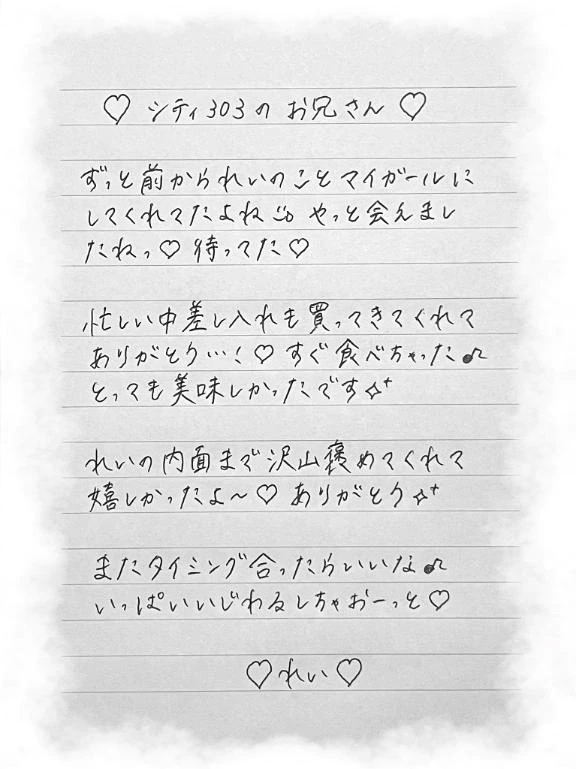 ♡ シティ303の お兄さん ♡
ずっと前かられいのことマイガールに
してくれてたよね やっと会えまし
たねっ♡ 待ってた♡
忙しい中差し入れも買ってきてくれて
ありがとう…！♡ すぐ食べちゃった♪
とっても美味しかったです✧⁺
れいの内面まで沢山褒めてくれて
嬉しかったよ～♡ ありがとう✧⁺
またタイミング合ったらいいな♪
いっぱいいじわるしちゃおーっと♡
♡れい♡